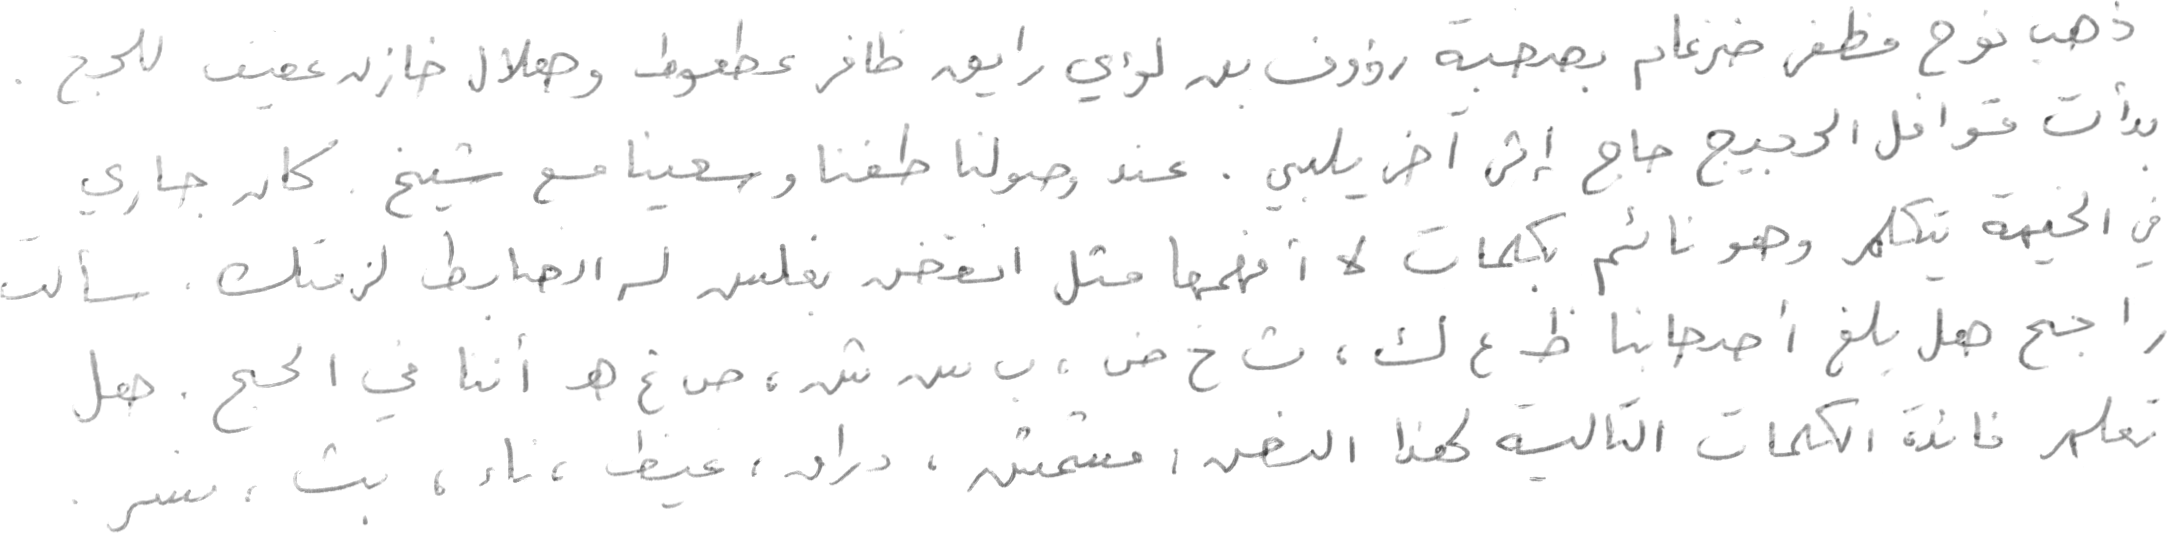 ذهب نوح مظفر ضرغام بصحبة رؤوف بن لؤي رايق ظافر عطعوط وهلال خازن عفيف للحج .
بدأت قوافل الحجيج حاج إثر آخر يلبي . عند وصولنا طفنا وسعينا مع شيخ . كان جاري
في الخيمة يتكلم وهو نائم بكلمات لا أفهمها مثل انقض بغلس له الضابط لزمتك . سألت
راجح هل بلغ أصحابنا ظ ع ك ، ث خ ض ، ب س ش ، ص غ هـ أننا في الحج . هل
تعلم فائدة الكلمات التالية لهذا النص : مشمش ، دراق ، غيظ ، ناء ، بث ، نسر .